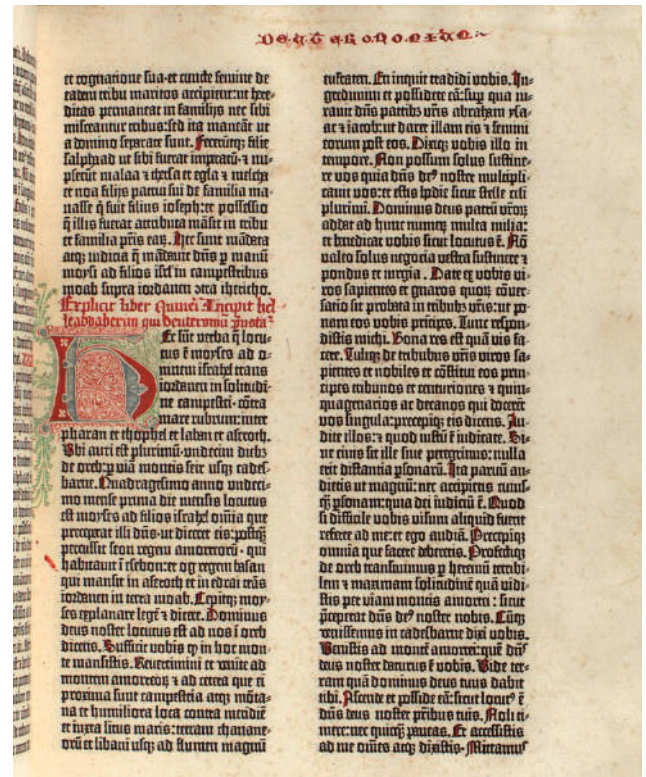 DEUTERONOMI
et cognatione sua·et cuncte femine de
eadem tribu maritos accipient:ut here-
ditas permaneat in familijs nec sibi
misceantur tribus:sed ita maneāt ut
a domino separate sunt. Feceruntq; filie
salphaad ut sibi fuerat imperatū·⁊ nu-
pserūt malaa ⁊ thersa et egla ⁊ melcha
et noa filijs patrui sui de familia ma-
nasse q̄ fuit filius ioseph:et possessio
q̄ illis fuerat attributa māsit in tribu
et familia p̄ris eaꝝ. Hec sunt mādata
atq; iudicia q̄ mādauit dn̄s p̱ manū
moysi ad filios isrł in campestribus
moab supra iordanem ↄtra ihericho.
Explicit liber Numeri Incipit hel
leaddaberim qui deuteronomiū p̄notaᷓ
Hec sūt verba q̄ locu-
tus ē moyses ad o-
mnem israhel trans
iordanem in solitudi-
ne campestri·cōtra
mare rubrum:inter
pharan et thophel et laban et aseroth.
Vbi auri est plurimū·undecim diebꝫ
de oreb:p̱ viā montis seir usq; cades-
barne. Quadragesimo anno undeci-
mo mense prima die mensis locutus
est moyses ad filios israhel om̄ia que
preceperat illi dn̄s·ut diceret eis:postq̄ꝫ
percussit seon regem amorreorū·qui
habitauit ī esebon:et og regem basan
qui mansit in aseroth et in edrai trās
iordanem in terra moab. Cepitq; moy-
ses explanare legē ⁊ dicere. Dominus
deus noster locutus est ad nos ī oreb
dicens. Sufficit vobis q̱ in hoc mon-
te mansistis. Reuertimini et venite ad
montem amorreoꝝ ⁊ ad cetera que ei
proxima sunt campestria atq; mōta-
na et humiliora loca contra meridiē
et iuxta litus maris:terram chanane-
orū et libani usq; ad flumen magnū
eufraten. En inquit tradidi vobis. In-
gredimini et possidete eā:sup̱ qua iu-
rauit dn̄s patribꝫ vr̄is abraham ysa-
ac ⁊ iacob:ut daret illam eis ⁊ semini
eorum post eos. Dixiq; vobis illo in
tempore. Non possum solus sustine-
re vos quia dn̄s deꝰ noster multipli-
cauit vos:et estis hodie sicut stelle celi
plurimi. Dominus deus patrū vr̄oꝝ
addat ad hunc numeꝝ multa milia:
et benedicat vobis sicut locutus ē. Nō
valeo solus negocia vestra sustinere ⁊
pondus et iurgia. Date eꝫ vobis vi-
ros sapientes et gnaros quoꝝ cōuer-
satio sit probata in tribubꝫ vr̄is:ut po-
nam eos vobis prīcipes. Tunc respon-
distis michi. Bona res est quā vis fa-
cere. Tuliq; de tribubus vr̄is viros sa-
pientes et nobiles et cōstitui eos prin-
cipes tribunos et centuriones ⁊ quin-
quagenarios ac decanos qui docerēt
vos singula:precepiq; eis dicens. Au-
dite illos:⁊ quod iustū ē iudicate. Si-
ue ciuis sit ille siue peregrinus:nulla
erit distantia p̱sonarū. Ita paruū au-
dietis ut magnū:nec accipietis cuius-
q̄ p̱sonam:quia dei iudiciū ē. Quod
si difficile vobis visum aliquid fuerit
referte ad me:et ego audiā. Precepiq;
omnia que facere deberetis. Profectiq;
de oreb transiuimus p̱ heremū terribi-
lem ⁊ maximam solitudinē quā vidi-
stis per viam montis amorrei:sicut
p̄ceperat dn̄s deꝰ noster nobis. Cūq;
venissemus in cadesbarne dixi vobis.
Venistis ad montē amorrei:quē dn̄s
deus noster daturus ē vobis. Vide ter-
ram quā dominus deus tuus dabit
tibi. Ascende et posside eā:sicut locutꝰ ē
dn̄s deus noster p̄ribus tuis. Noli ti-
mere:nec quicq̄ꝫ paueas. Et accessistis
ad me om̄es atq; dixistis. Mittamꝰ